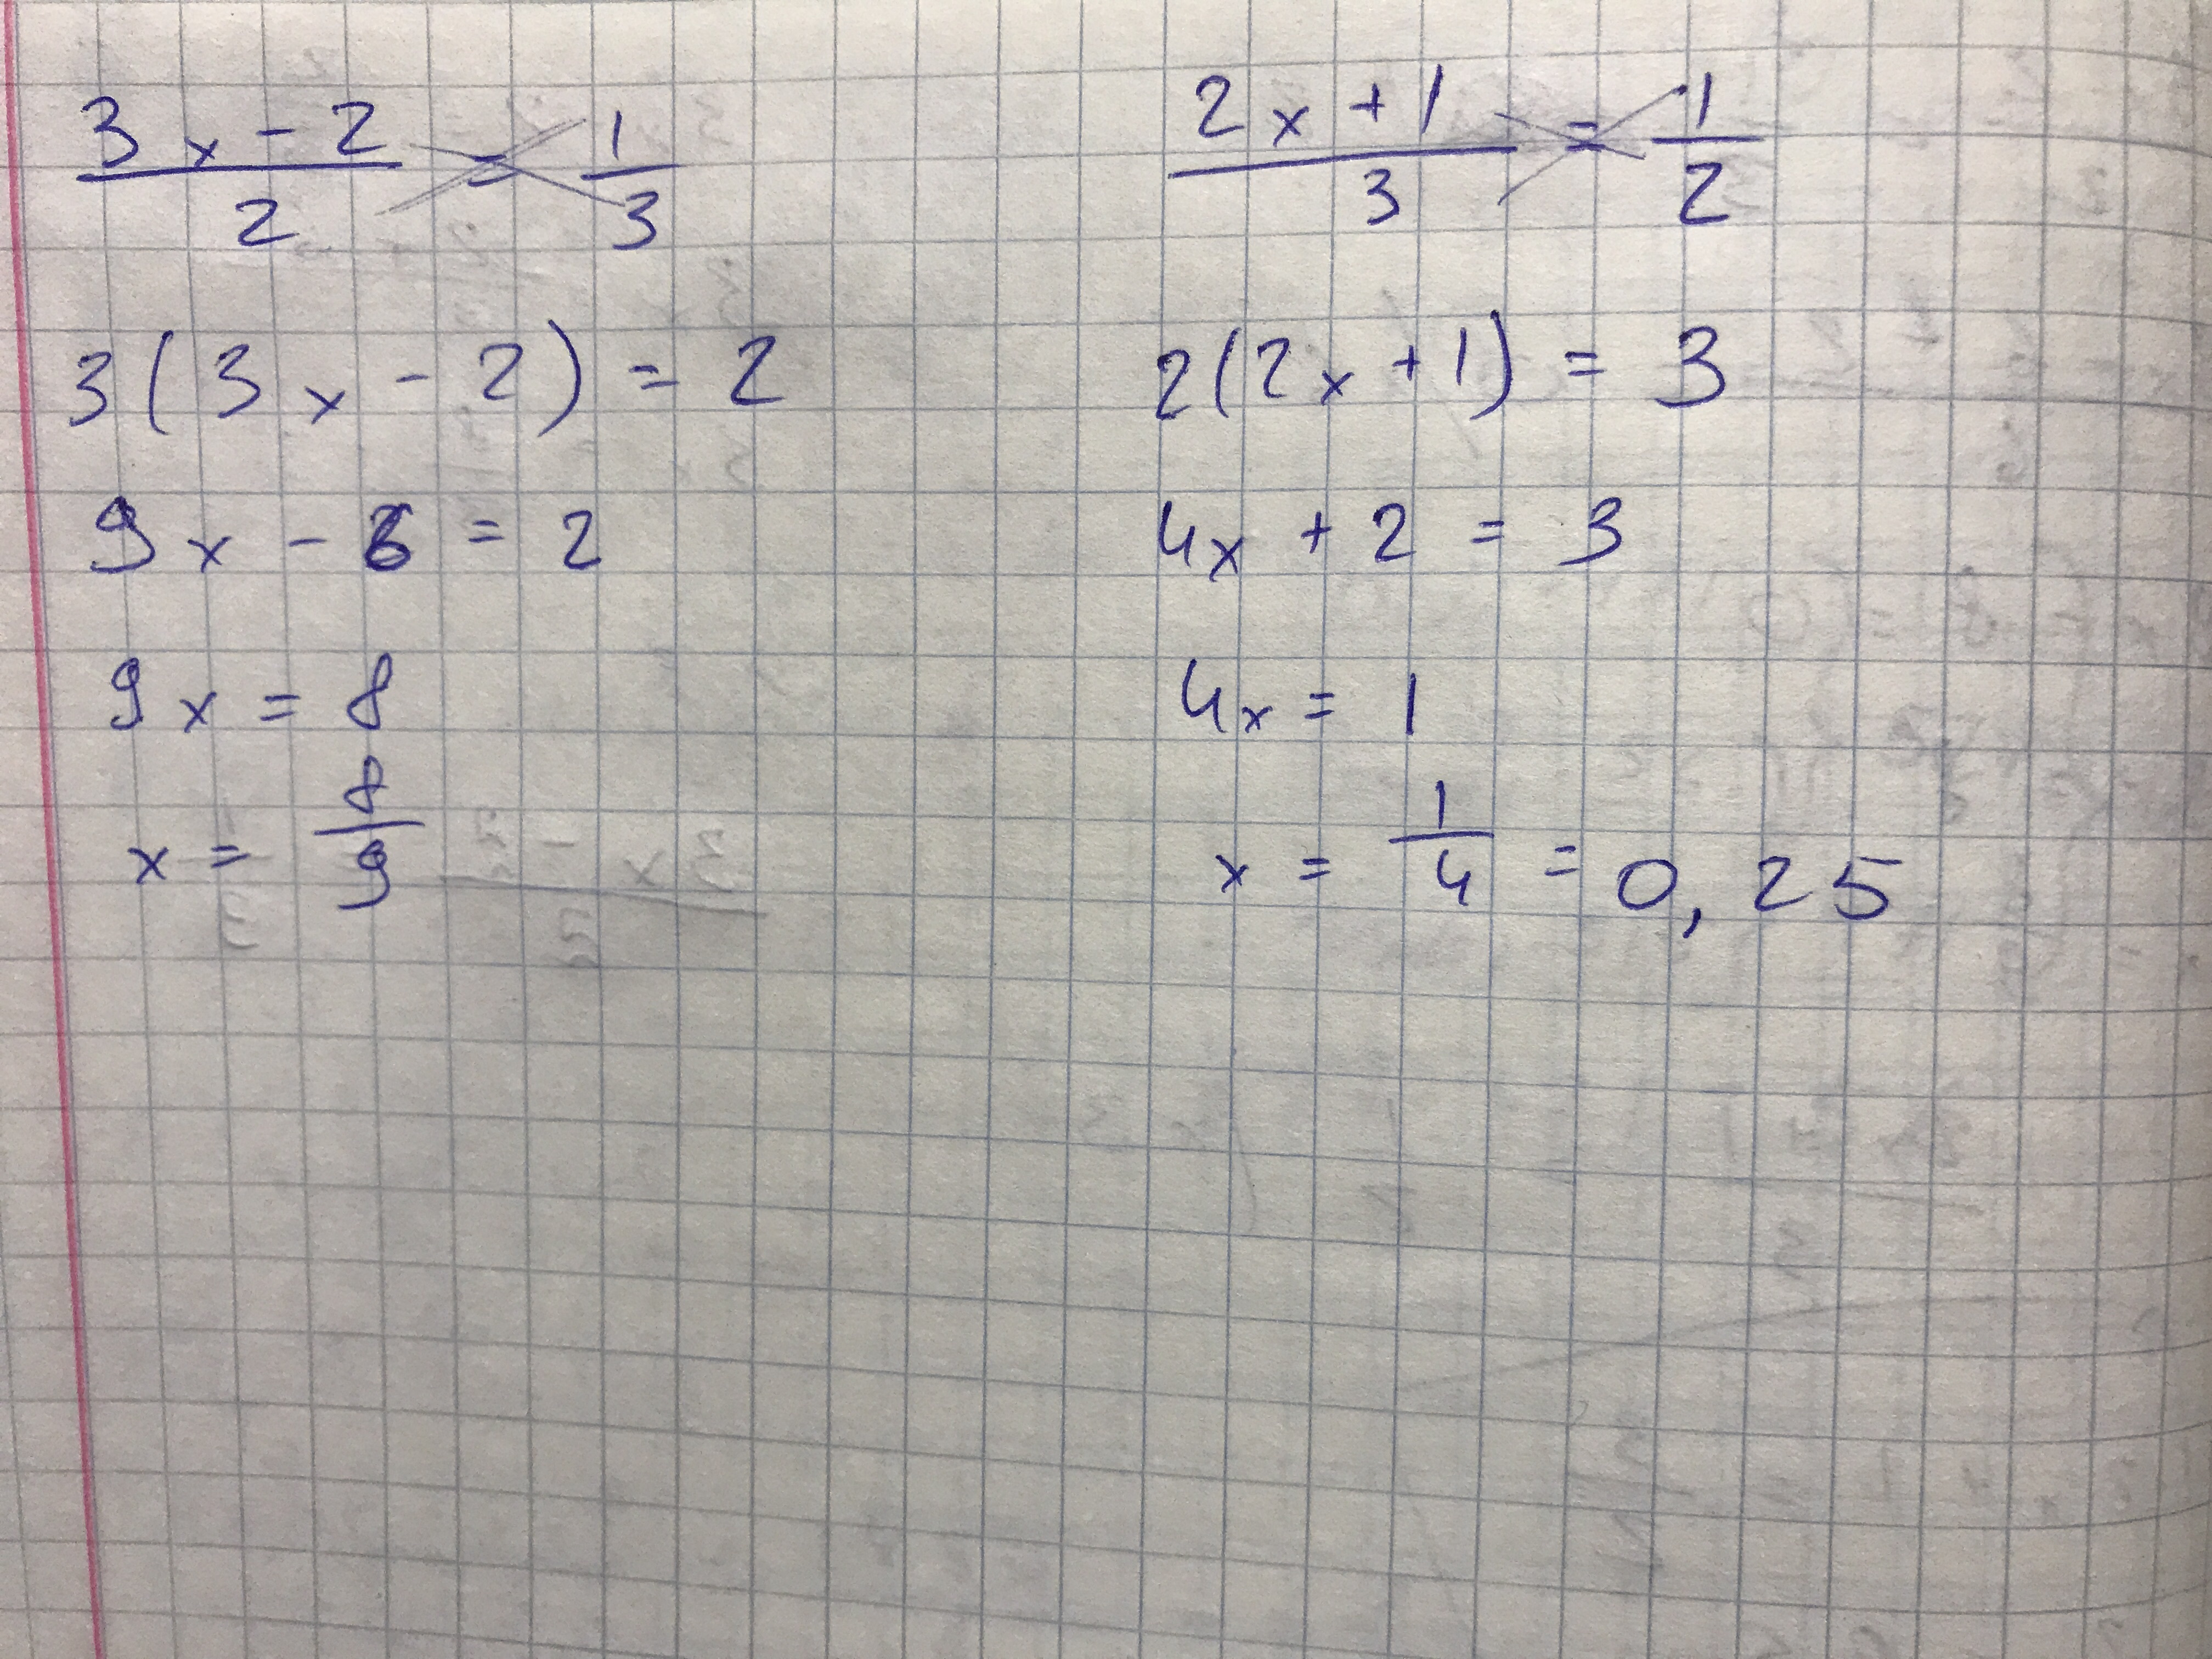 (3x - 2)/2 = 1/3
3(3x - 2) = 2
9x - 6 = 2
9x = 8
x = 8/9
(2x + 1)/3 = 1/2
2(2x + 1) = 3
4x + 2 = 3
4x = 1
x = 1/4 = 0,25